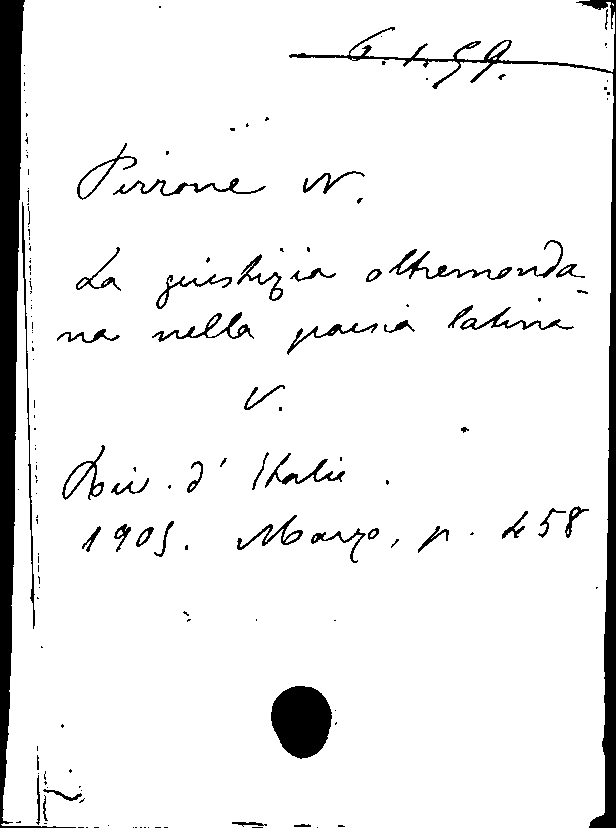 6.1.59.
Pirrone N.
La giustizia oltremonda-
na nella poesia latina
V.
Riv. d'Italia.
1905. Marzo, p. 458